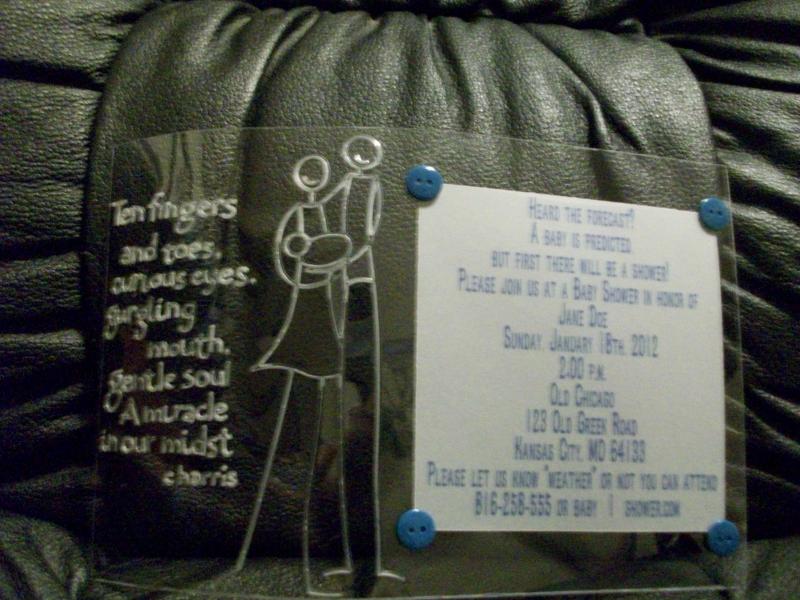 Ten fingers
and toes,
curious eyes,
gurgling
mouth,
gentle soul
A miracle
in our midst
charris
HEARD THE FORECAST?
A BABY IS PREDICTED
BUT FIRST THERE WILL BE A SHOWER!
PLEASE JOIN US AT A BABY SHOWER IN HONOR OF
JANE DOE
SUNDAY, JANUARY 18TH, 2012
2:00 P.M.
OLD CHICAGO
123 OLD GREEK ROAD
KANSAS CITY, MO 64133
PLEASE LET US KNOW "WEATHER" OR NOT YOU CAN ATTEND
816-258-555 OR BABY | SHOWER.COM